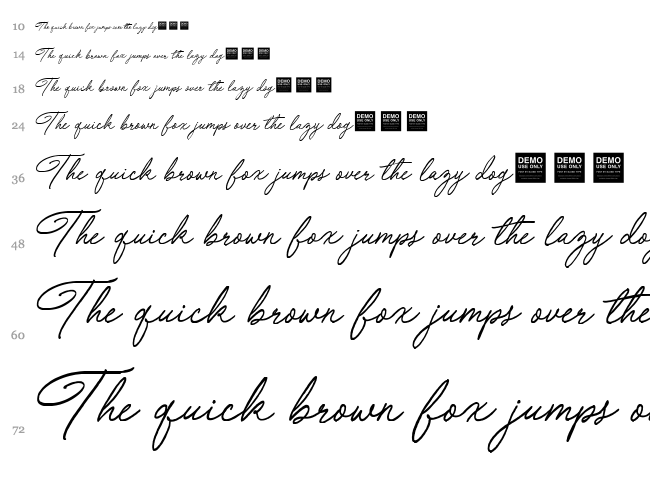 10 The quick brown fox jumps over the lazy dog
14 The quick brown fox jumps over the lazy dog DEMO DEMO DEMO
18 The quick brown fox jumps over the lazy dog DEMO DEMO DEMO
24 The quick brown fox jumps over the lazy dog DEMO USE ONLY DEMO USE ONLY DEMO USE ONLY
36 The quick brown fox jumps over the lazy dog DEMO USE ONLY DEMO USE ONLY DEMO USE ONLY
48 The quick brown fox jumps over the lazy do
60 The quick brown fox jumps over the
72 The quick brown fox jumps o